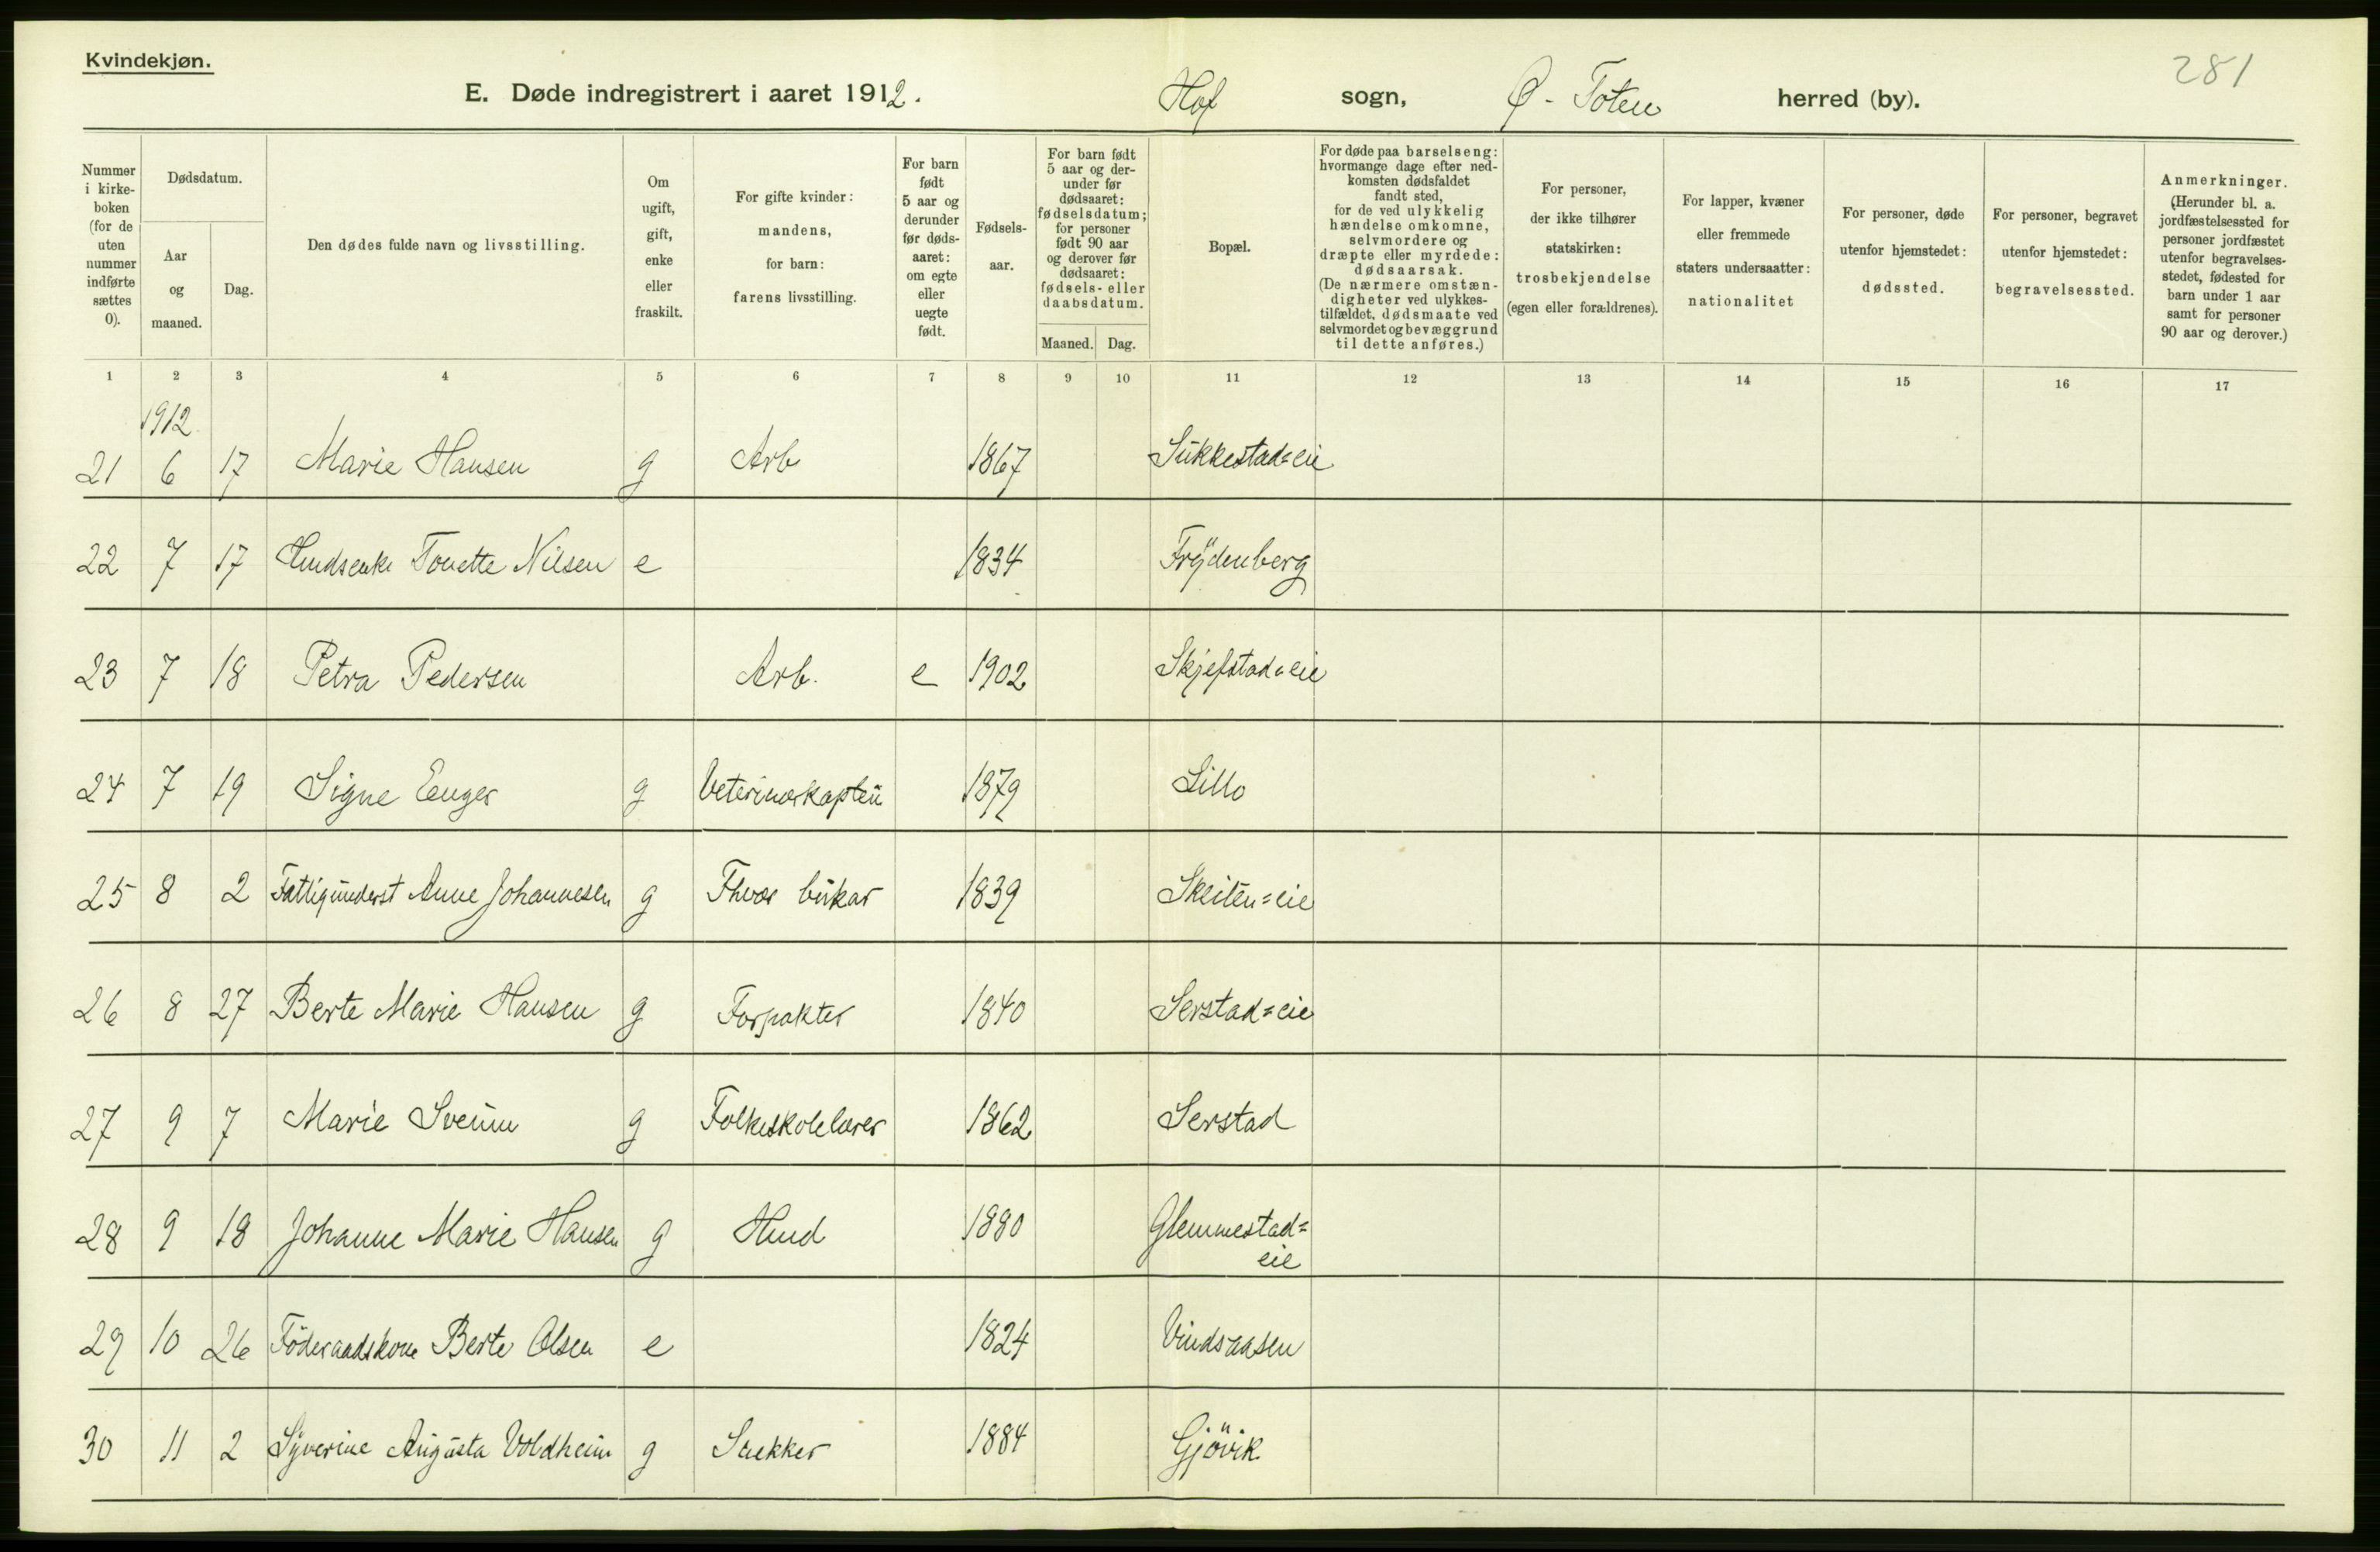 Kvindekjøn.
281
E. Døde indregistrert i aaret 1912. Hof sogn, Ø - Toten herred (by).
Nummer i kirke-boken (for de uten nummer indførte sættes 0).
Dødsdatum.
Aar og maaned.
Dag.
Den dødes fulde navn og livsstilling.
Om ugift, gift, enke eller fraskilt.
For gifte kvinder: mandens, for barn: farens livsstilling.
For barn født 5 aar og derunder før døds-aaret: om egte eller uegte født.
Fødsels-aar.
For barn født 5 aar og der-under før dødsaaret: fødselsdatum; for personer født 90 aar og derover før dødsaaret: fødsels- eller daabsdatum.
Maaned. Dag.
Bopæl.
For døde paa barselseng: hvormange dage efter ned-komsten dødsfaldet fandt sted, for de ved ulykkelig hændelse omkomne, selvmordere og dræpte eller myrdede: dødsaarsak. (De nærmere omstæn-digheter ved ulykkes-tilfældet, dødsmaate ved selvmordet og bevæggrund til dette anføres.)
For personer, der ikke tilhører statskirken: trosbekjendelse (egen eller forældrenes).
For lapper, kvæner eller fremmede staters undersaatter: nationalitet
For personer, døde utenfor hjemstedet: dødssted.
For personer, begravet utenfor hjemstedet: begravelsessted.
Anmerkninger. (Herunder bl. a. jordfæstelsessted for personer jordfæstet utenfor begravelses-stedet, fødested for barn under 1 aar samt for personer 90 aar og derover.)
1 2 3 4 5 6 7 8 9 10 11 12 13 14 15 16 17
1912
21 6 17 Marie Hansen g Arb 1867 Sukkestad=eie
22 7 17 Hmdsenke Tonette Nilsen e 1834 Frydenberg
23 7 18 Petra Pedersen Arb. e 1902 Skjefstad=eie
24 7 19 Signe Enger g Veterinærkaptein 1879 Lillo
25 8 2 Fattigunderst Anne Johannesen g Fhver 1839 Skeiten=eie
26 8 27 Berte Marie Hansen g Forpakter 1840 Serstad=eie
27 9 7 Marie Sveum g Folkeskolelærer 1862 Serstad
28 9 18 Johanne Marie Hansen g Hmd 1880 Glemmestad=
eie
29 10 26 Föderaadskone Berte Olsen e 1824 Vindsaasen
30 11 2 Syverine Augusta Voldheim g Snekker 1884 Gjövik